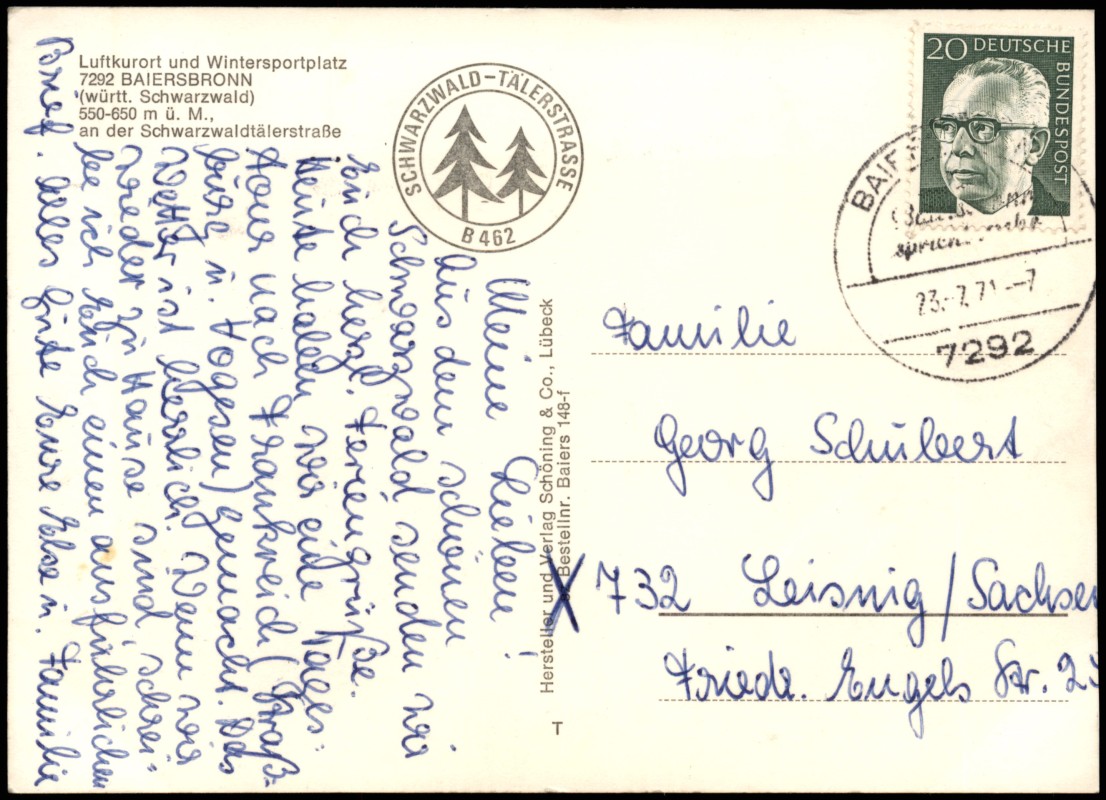 Luftkurort und Wintersportplatz
7292 BAIERSBRONN
(württ. Schwarzwald)
550-650 m ü. M.,
an der Schwarzwaldtälerstraße
SCHWARZWALD-TÄLERSTRASSE
B 462
20 DEUTSCHE
BUNDESPOST
23.-7.71.-7
7292
Meine Lieben!
Aus dem schönen
Schwarzwald senden wir
Euch herzl. Feriengrüße.
Heute haben wir eine Tages=
tour nach Frankreich (Straß-
burg u. Vogesen) gemacht. Das
Wetter ist herrlich. Wenn wir
wieder zu Hause sind, schrei=
be ich Euch einen ausführlichen
Brief. Alles Gute Eure Else u. Familie
Hersteller und Verlag Schöning & Co., Lübeck
Bestellnr. Baiers 148-f
T
Familie
Georg Schubert
X 732 Leisnig/Sachsen
Friedr. Engels Str.